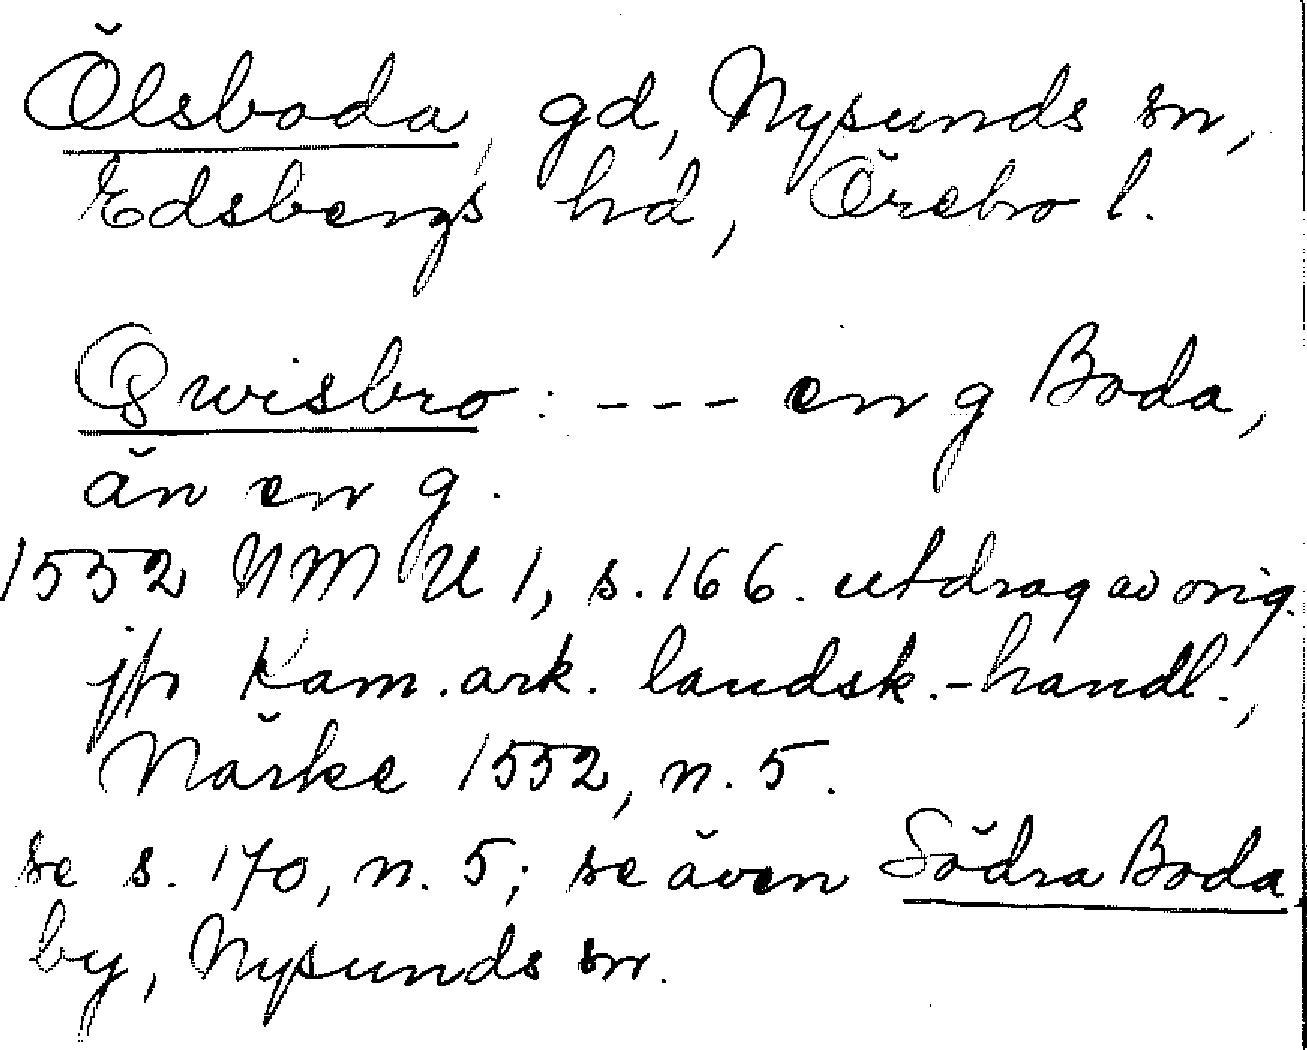 Ölsboda, gd, Nysunds sn,
Edsbergs hd, Örebro l.
Qwisbro: --- en g Boda,
än en g.
1552 NMU 1, s. 166. utdrag av orig.
jfr Kam.ark. landsk.-handl.,
Närke 1552, n. 5.
se s. 170, n. 5; se även Södra Boda
by, Nysunds sn.